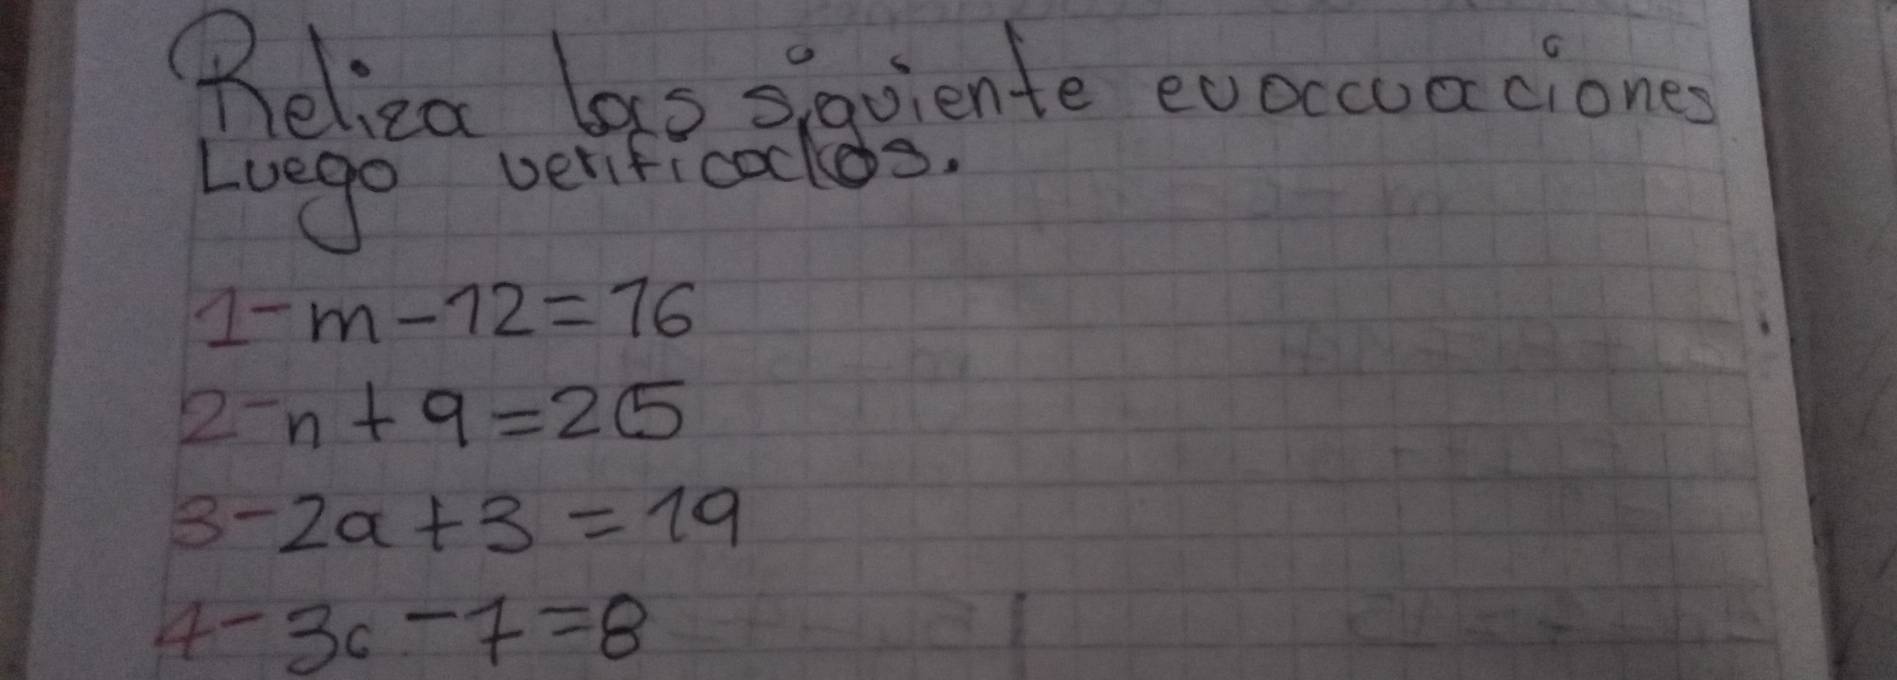 Reliza las siguiente euoccuaciones
Luego verificaclos.
1- m - 12 = 16
2- n + 9 = 25
3- 2a + 3 = 19
4- 3c - 7 = 8